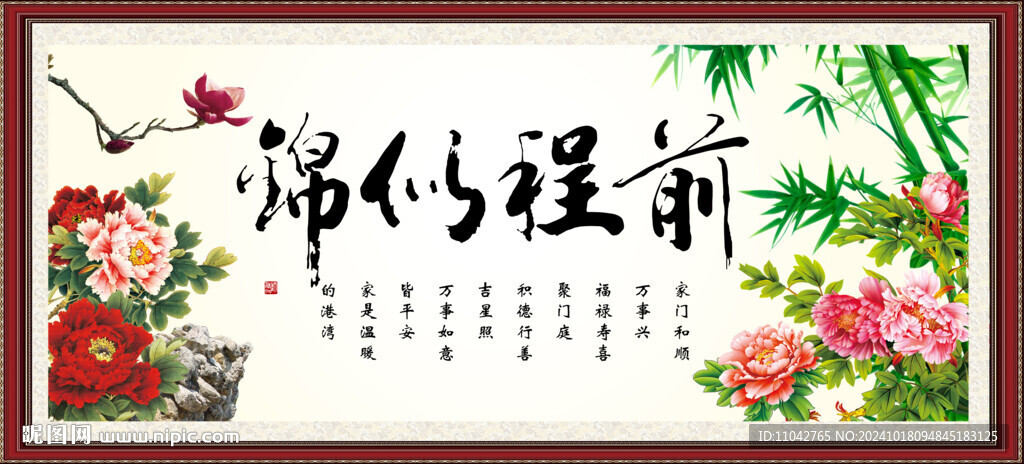 前程似锦
家门和顺
万事兴
福禄寿喜
聚门庭
积德行善
吉星照
万事如意
皆平安
家是温暖
的港湾
昵图网 www.nipic.com
ID:11042765 NO:20241018094845183125